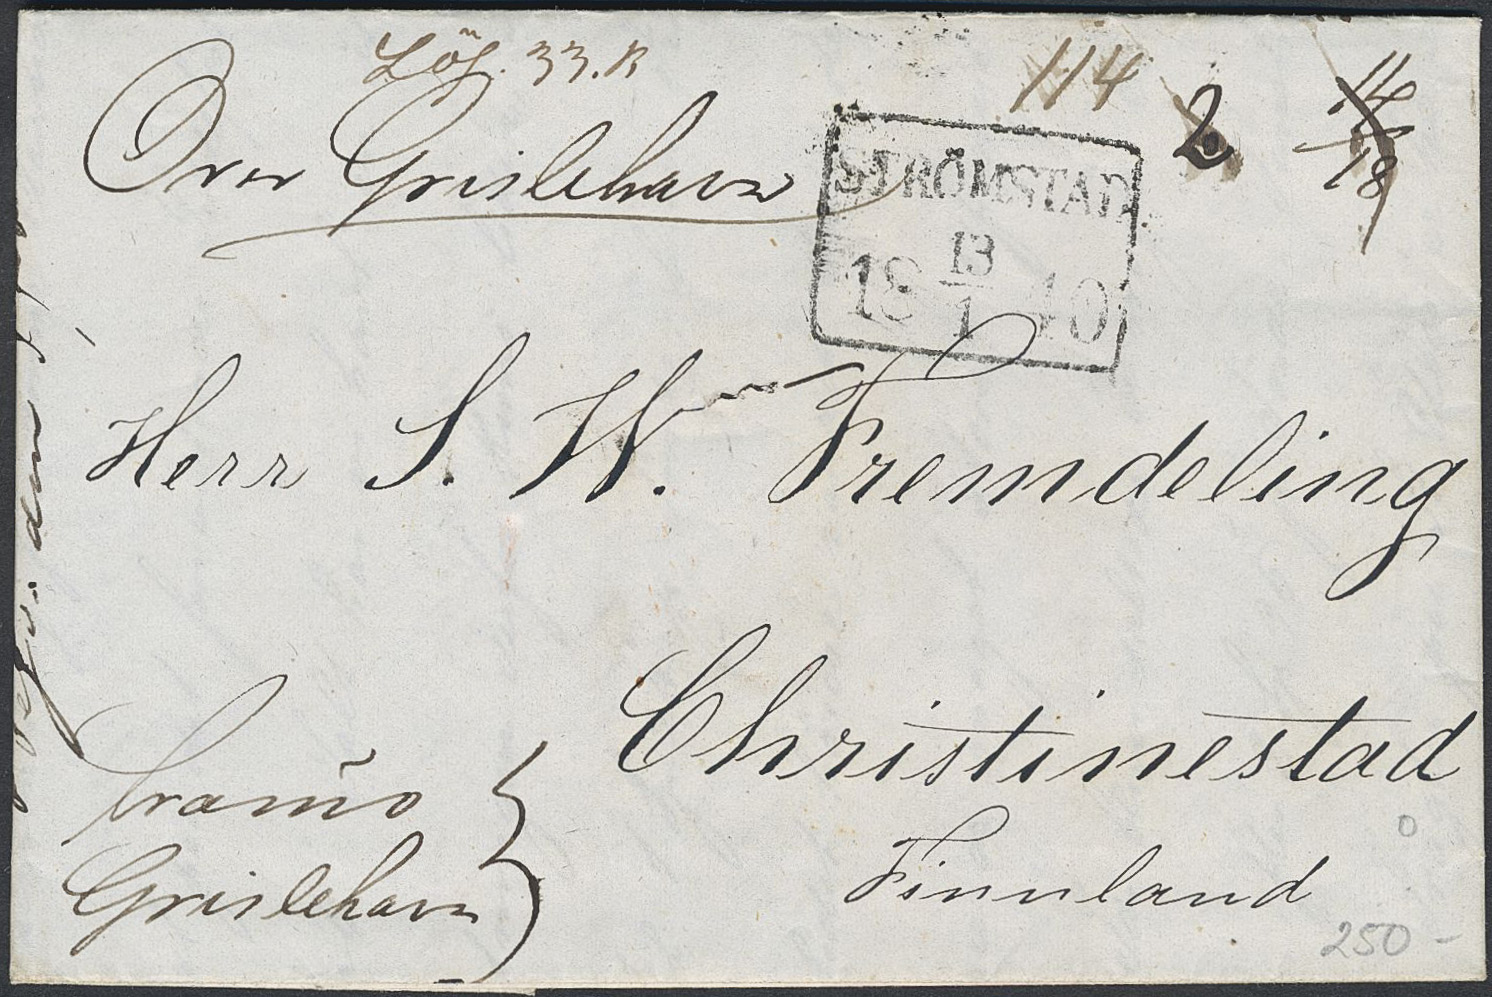 Löf. 33. R
114
2
14
18
Over Grislehavn
STRÖMSTAD
13
18 1 40
Herr S. W. Fremdeling
Christinestad
Finnland
franco
Grislehavn
den
250 -